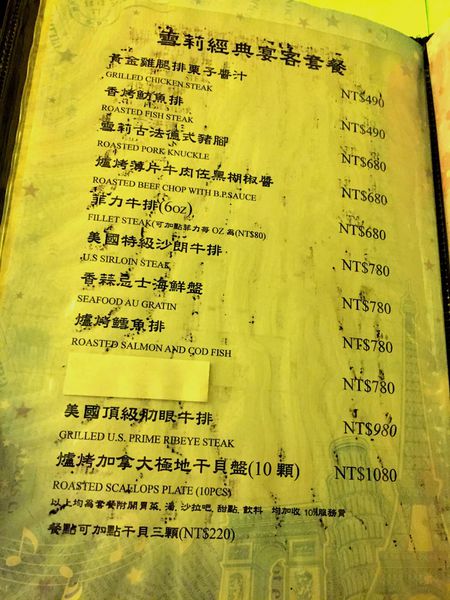 雪莉經典宴客套餐
黃金雞腿排栗子醬汁
GRILLED CHICKEN STEAK NT$490
香烤魴魚排
ROASTED FISH STEAK NT$490
雪莉古法德式豬腳
ROASTED PORK KNUCKLE NT$680
爐烤薄片牛肉佐黑椒醬
ROASTED BEEF CHOP WITH B.P.SAUCE NT$680
菲力牛排(6oz)
FILLET STEAK(可加點菲力每 OZ 為(NT$80) NT$680
美國特級沙朗牛排
U.S SIRLOIN STEAK NT$780
香蒜忌士海鮮盤
SEAFOOD AU GRATIN NT$780
爐烤鱈魚排
ROASTED SALMON AND COD FISH NT$780
NT$780
美國頂級肋眼牛排
GRILLED U.S. PRIME RIBEYE STEAK NT$980
爐烤加拿大極地干貝盤(10 顆) NT$1080
ROASTED SCALLOPS PLATE (10PCS)
以上均為套餐附開胃菜, 湯, 沙拉吧, 甜點, 飲料 均加收 10%服務費
餐點可加點干貝三顆(NT$220)